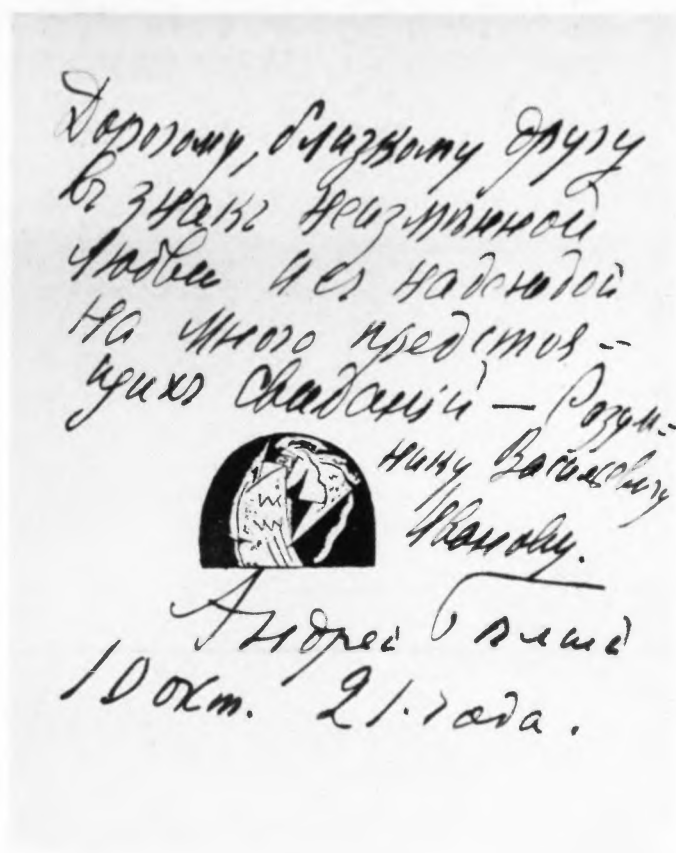 Дорогому, близкому другу
въ знакъ неизмѣнной
любви и съ надеждой
на много предстоя-
щихъ свиданій — Разум-
нику Васильевичу
Иванову.
Андрей Бѣлый
10 окт. 21. года.